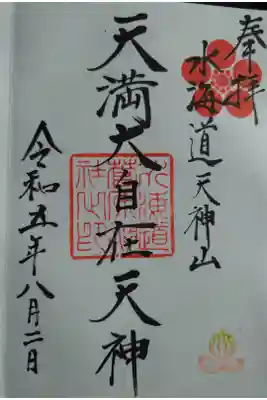 奉拝
水海道天神山
天満大自在天神
令和五年八月二日